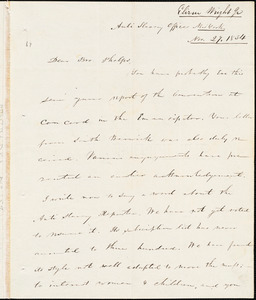 Elizur Wright Jr
Anti Slavery Office New York
Nov. 27. 1834
Dear Bro. Phelps,
You have probably ere this
seen your report of the Convention at
Concord in the Emancipator. Yours
from South Berwick was also duly re
ceived. Various engagements have pre
vented an earlier acknowledgement.
I write now to say a word about the
Anti Slavery Reporter. We have not yet voted
to remove it. Its subscription list has never
amounted to three hundred. We have found
its style not well adapted to move the mass,
to interest women & children, and you